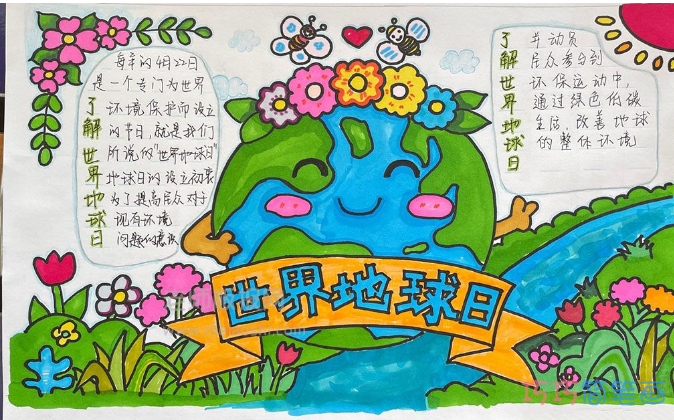 每年的4月22日
是一个专门为世界
环境保护而设立
的节日,就是我们
所说的"世界地球日"
地球日的设立初衷
为了提高居众对于
现有环境
问题的意识
了解世界地球日
并动员
居众参与到
环保运动中,
通过绿色低碳
生活,改善地球
的整体环境
了解世界地球日
世界地球日